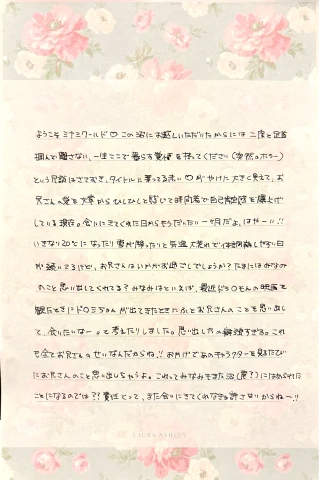 ようこそ ミナミワールド〇 この沼にお越しいただいたからには 二度と足首
掴んで離さない、一生ここで暮らす覚悟を持ってください(突然のホラー)
という冗談はさておき、タイトルに乗ってる赤い〇がやけに大きく見えて、お
兄さんの愛を文章からひしひしと感じて時間差で自己肯定感を爆上げ
している現在。会いにきてくれた日からもうだいたい一ヶ月だよ、はやーい!!
いきなり20℃になったり雪が降ったりと気温大荒れで体調崩しやすい日
が続いてるけど、お兄さんはいかがお過ごしでしょうか?たまにはみなみ
のこと思い出してくれてる?みなみはといえば、最近ドラ〇もんの映画を
観たときにド〇ミちゃんが出てきたときにふとお兄さんのことを思い出し
て、会いたいなーって考えたりしました。思い出し方の癖強すぎる。これ
も全てお兄さんのせいなんだからね!!おかげであのキャラクターを見るたび
にお兄さんのこと思い出しちゃうよ。これってみなみもまた沼(罠?)にはめられた
ことになるのでは??責任とって、また会いにきてくれなきゃ許さないからねー!!
LAURA ASHLEY